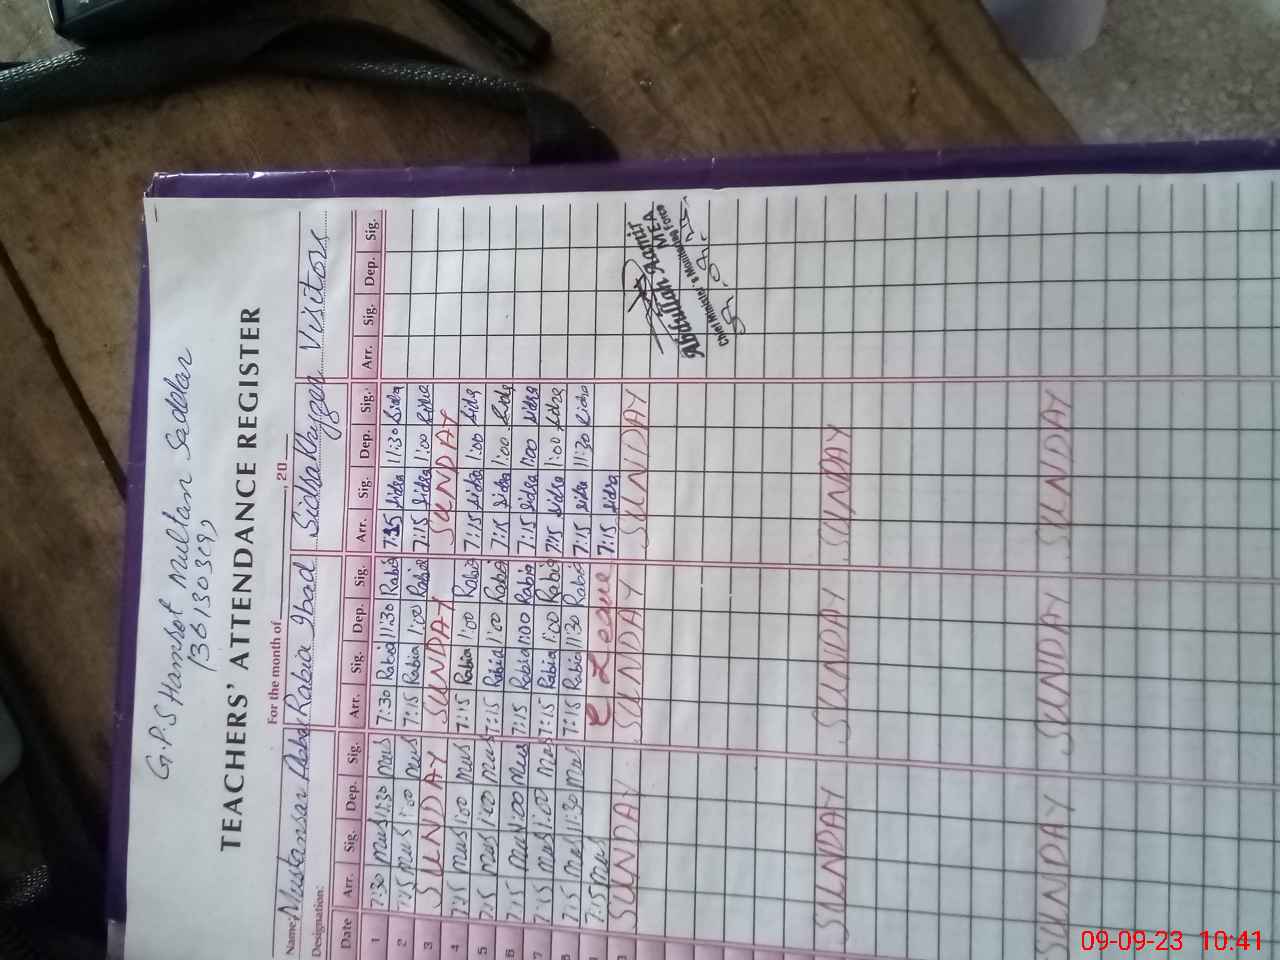 G.P.S Hamrot Multan Saddar
36130309
TEACHERS' ATTENDANCE REGISTER
For the month of , 20
Name: Mustansar Rabia Ibad Sidra Visitors
Designation:
Date Arr. Sig. Dep. Sig. Arr. Sig. Dep. Sig. Arr. Sig. Dep. Sig. Arr. Sig. Dep. Sig.
1 7:30 Mus 11:30 Mus 7:30 Rabia 11:30 Rabia 7:15 Sidra 11:30 Sidra
2 7:15 Mus 1:00 Mus 7:15 Rabia 1:00 Rabia 7:15 Sidra 1:00 Sidra
3 SUNDAY SUNDAY SUNDAY
4 7:15 Mus 1:00 Mus 7:15 Rabia 1:00 Rabia 7:15 Sidra 1:00 Sidra
5 7:15 Mus 1:00 Mus 7:15 Rabia 1:00 Rabia 7:15 Sidra 1:00 Sidra
6 7:15 Mus 1:00 Mus 7:15 Rabia 1:00 Rabia 7:15 Sidra 1:00 Sidra
7 7:15 Mus 1:00 Mus 7:15 Rabia 1:00 Rabia 7:15 Sidra 1:00 Sidra
8 7:15 Mus 11:30 Mus 7:15 Rabia 11:30 Rabia 7:15 Sidra 11:30 Sidra
7:15 Mus C Leave 7:15 Sidra
SUNDAY SUNDAY SUNDAY
Abdullah Aamir
MEA
Chief Minister's Monitoring Force
SUNDAY SUNDAY SUNDAY
SUNDAY SUNDAY SUNDAY
09-09-23 10:41